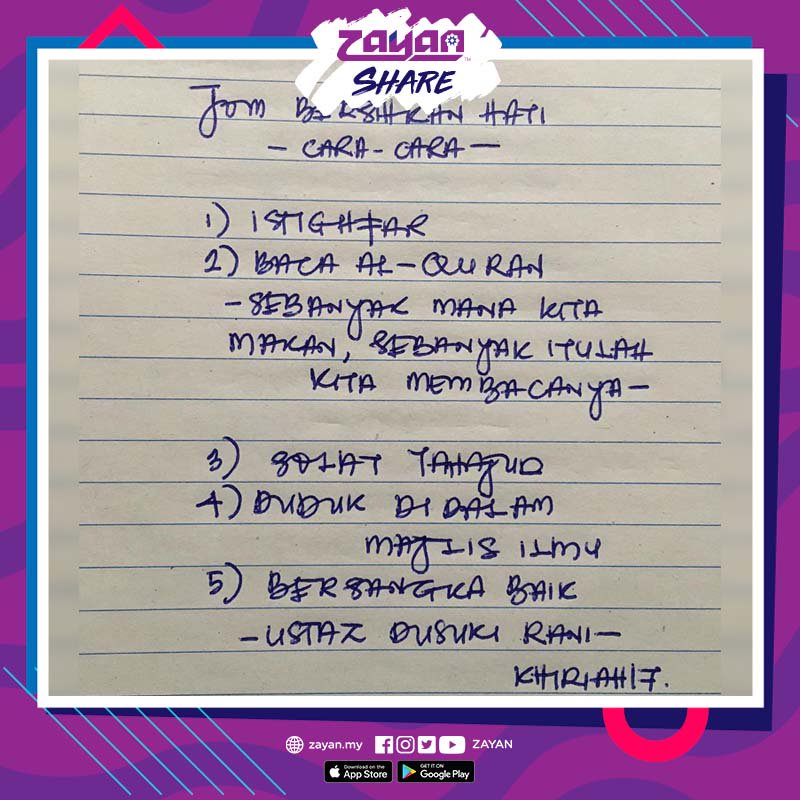 ZAYAN
SHARE
Jom BERSIHKAN HATI
- CARA-CARA -
1) ISTIGHFAR
2) BACA AL-QURAN
- SEBANYAK MANA KITA
MAKAN, SEBANYAK ITULAH
KITA MEMBACANYA -
3) SOLAT TAHAJUD
4) DUDUK DI DALAM
MAJLIS ILMU
5) BERSANGKA BAIK
- USTAZ DUSUKI RANI -
KHIRIAH17.
zayan.my ZAYAN
Download on the App Store GET IT ON Google Play